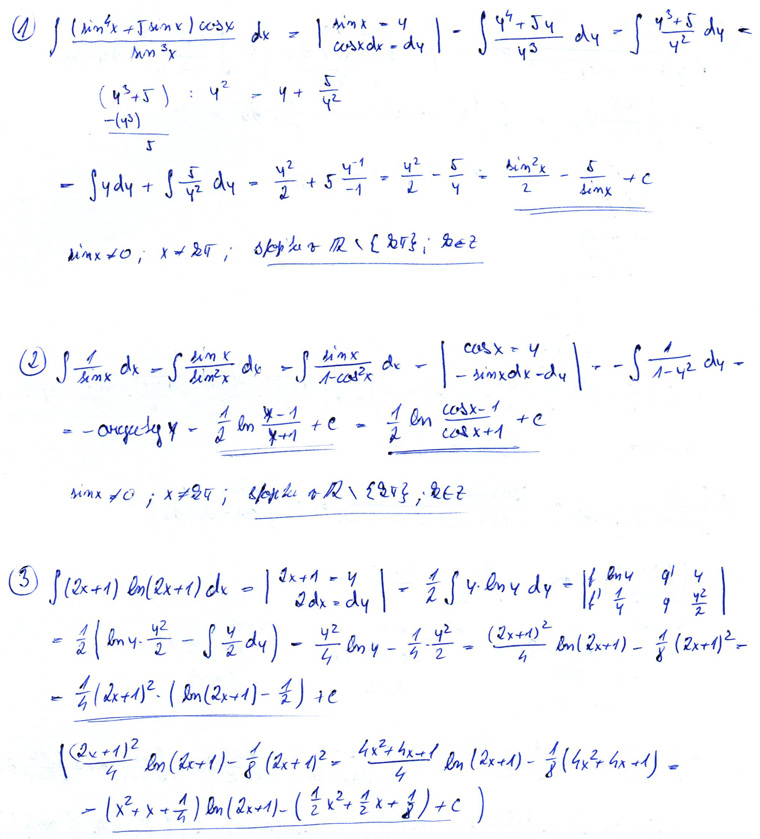 ① ∫ (sin⁴x + 5 sinx) cosx / sin³x dx = | sinx = y ; cosx dx = dy | = ∫ (y⁴ + 5y) / y³ dy = ∫ (y³ + 5) / y² dy =
(y³ + 5) : y² = y + 5/y²
-(y³)
5
= ∫ y dy + ∫ 5/y² dy = y²/2 + 5 y⁻¹/-1 = y²/2 - 5/y = sin²x/2 - 5/sinx + c
sinx ≠ 0 ; x ≠ kπ ; ℝ \ {kπ} ; k∈Z
② ∫ 1/sinx dx = ∫ sinx/sin²x dx = ∫ sinx/(1-cos²x) dx = | cosx = y ; -sinx dx = dy | = -∫ 1/(1-y²) dy =
= -argutgy = 1/2 ln (y-1)/(y+1) + c = 1/2 ln (cosx-1)/(cosx+1) + c
sinx ≠ 0 ; x ≠ kπ ; ℝ \ {kπ} ; k∈Z
③ ∫ (2x+1) ln(2x+1) dx = | 2x+1 = y ; 2dx = dy | = 1/2 ∫ y · ln y dy = | f ln y g' y ; f' 1/y g y²/2 |
= 1/2 ( ln y · y²/2 - ∫ y/2 dy ) = y²/4 ln y - 1/4 · y²/2 = (2x+1)²/4 ln(2x+1) - 1/8 (2x+1)² =
= 1/4 (2x+1)² · ( ln(2x+1) - 1/2 ) + c
( (2x+1)²/4 ln(2x+1) - 1/8 (2x+1)² = (4x²+4x+1)/4 ln(2x+1) - 1/8 (4x²+4x+1) =
= (x² + x + 1/4) ln(2x+1) - ( 1/2 x² + 1/2 x + 1/8 ) + c )